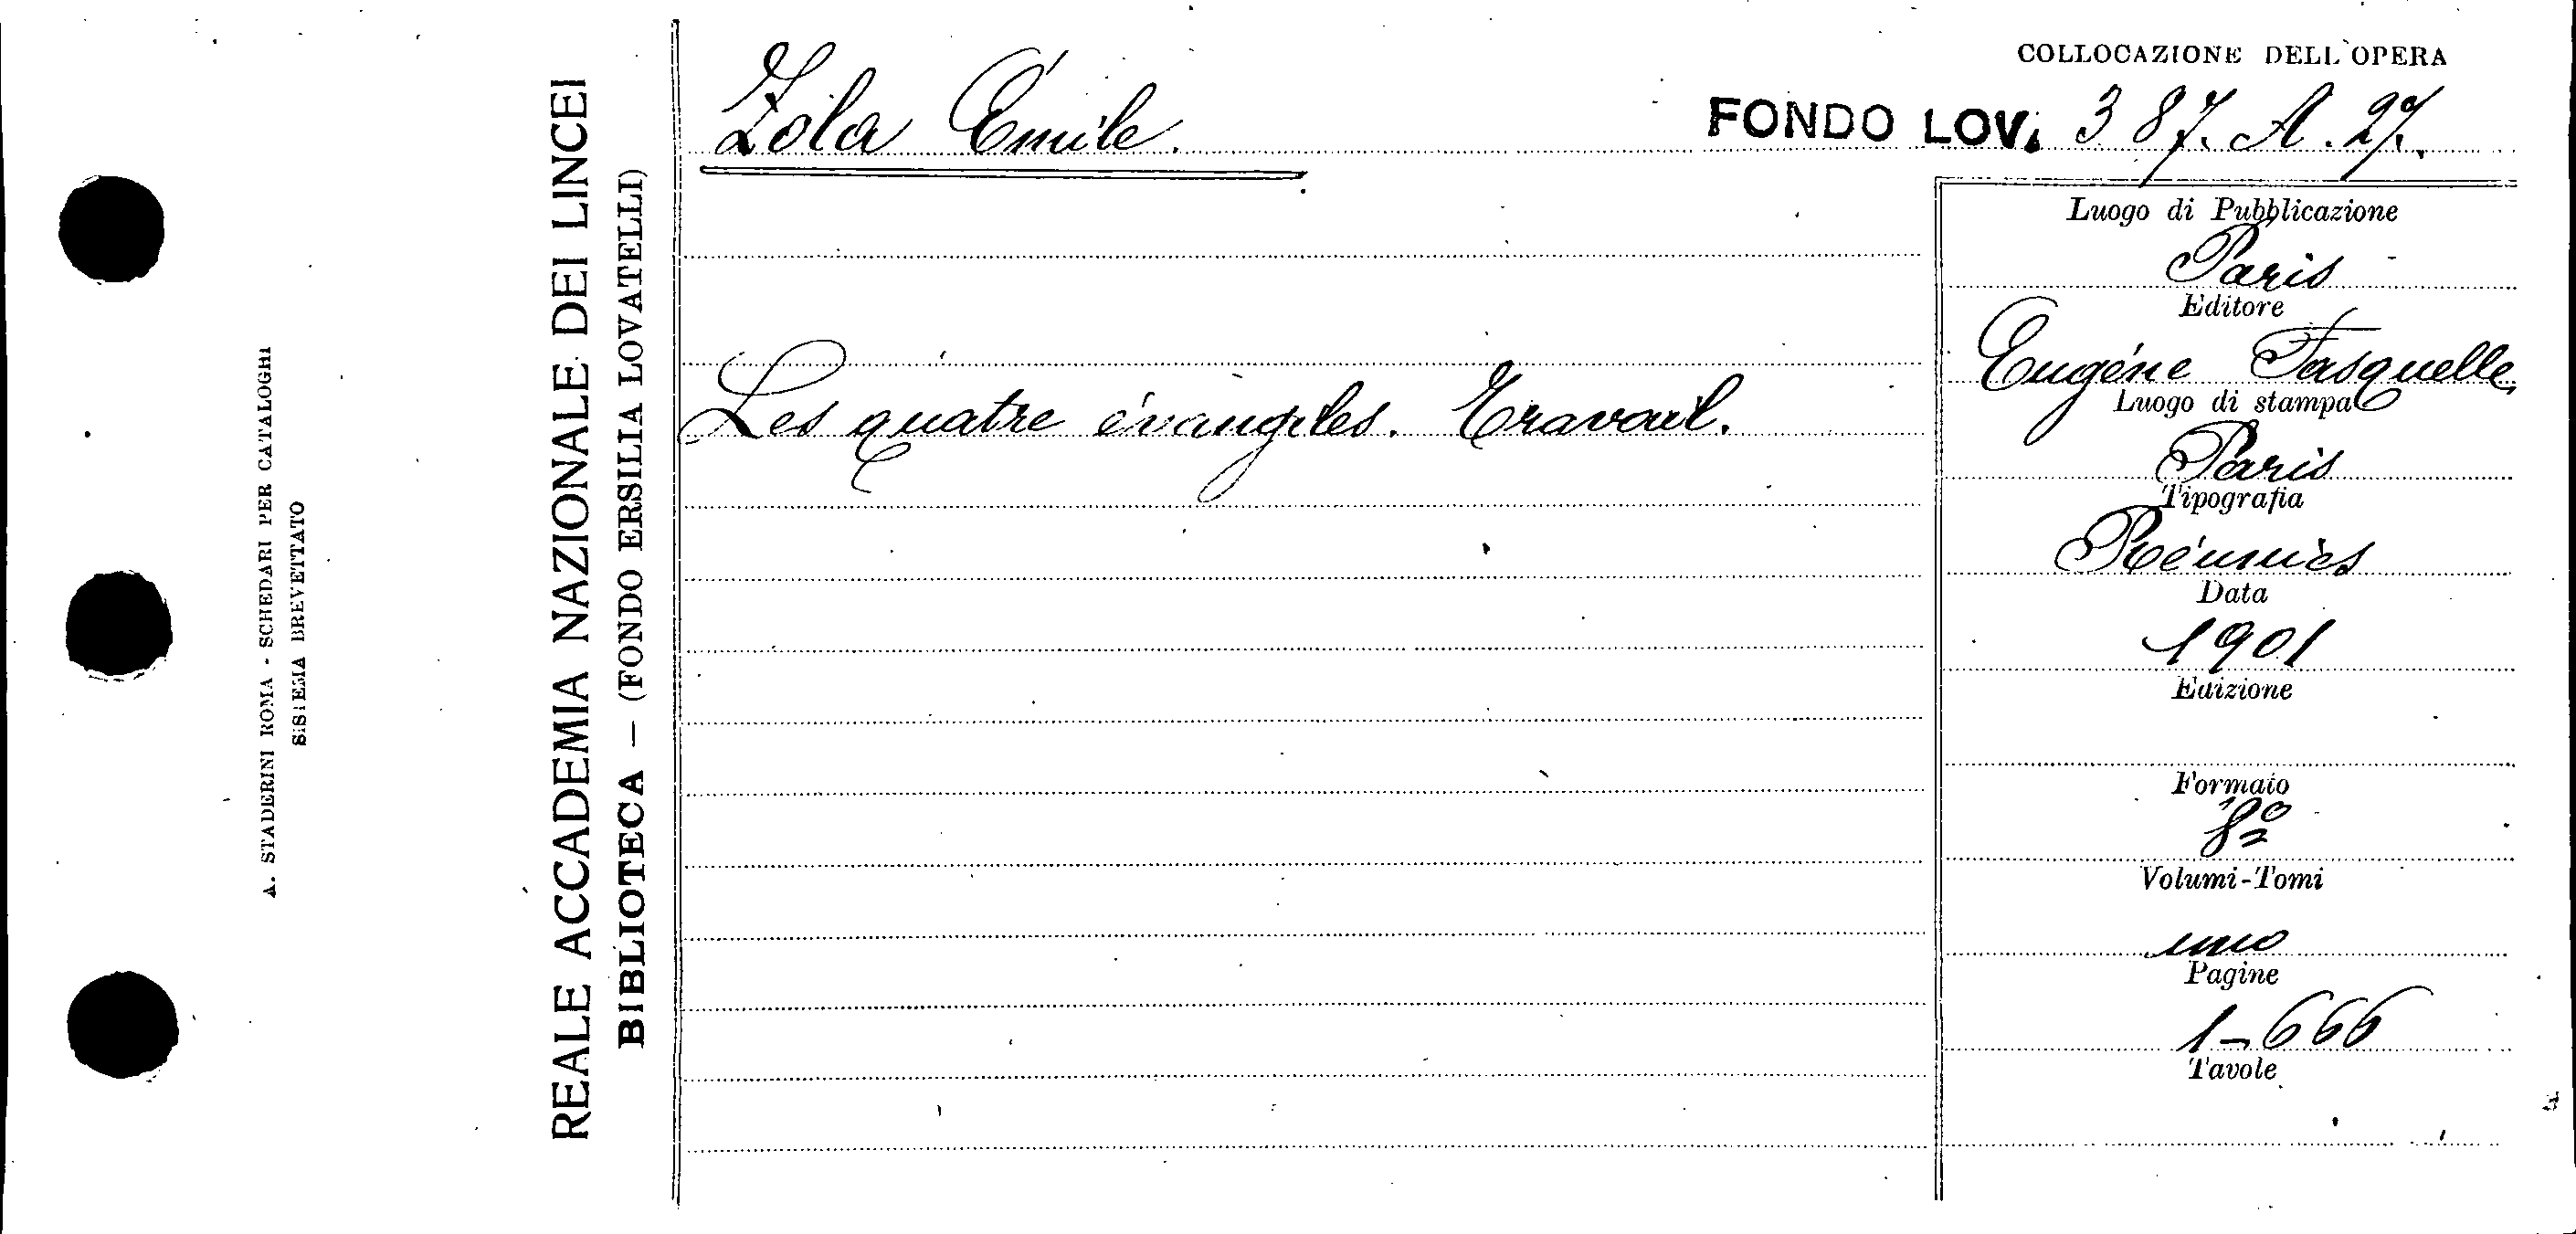 A. STADERINI ROMA - SCHEDARI PER CATALOGHI
SISTEMA BREVETTATO
REALE ACCADEMIA NAZIONALE DEI LINCEI
BIBLIOTECA — (FONDO ERSILIA LOVATELLI)
Zola Émile.
Les quatre évangiles. Travail.
COLLOCAZIONE DELL'OPERA
FONDO LOV. 387. A. 27.
Luogo di Pubblicazione
Paris
Editore
Eugéne Fasquelle
Luogo di stampa
Paris
Tipografia
Réunies
Data
1901
Edizione
Formato
8º
Volumi-Tomi
uno
Pagine
1-666
Tavole